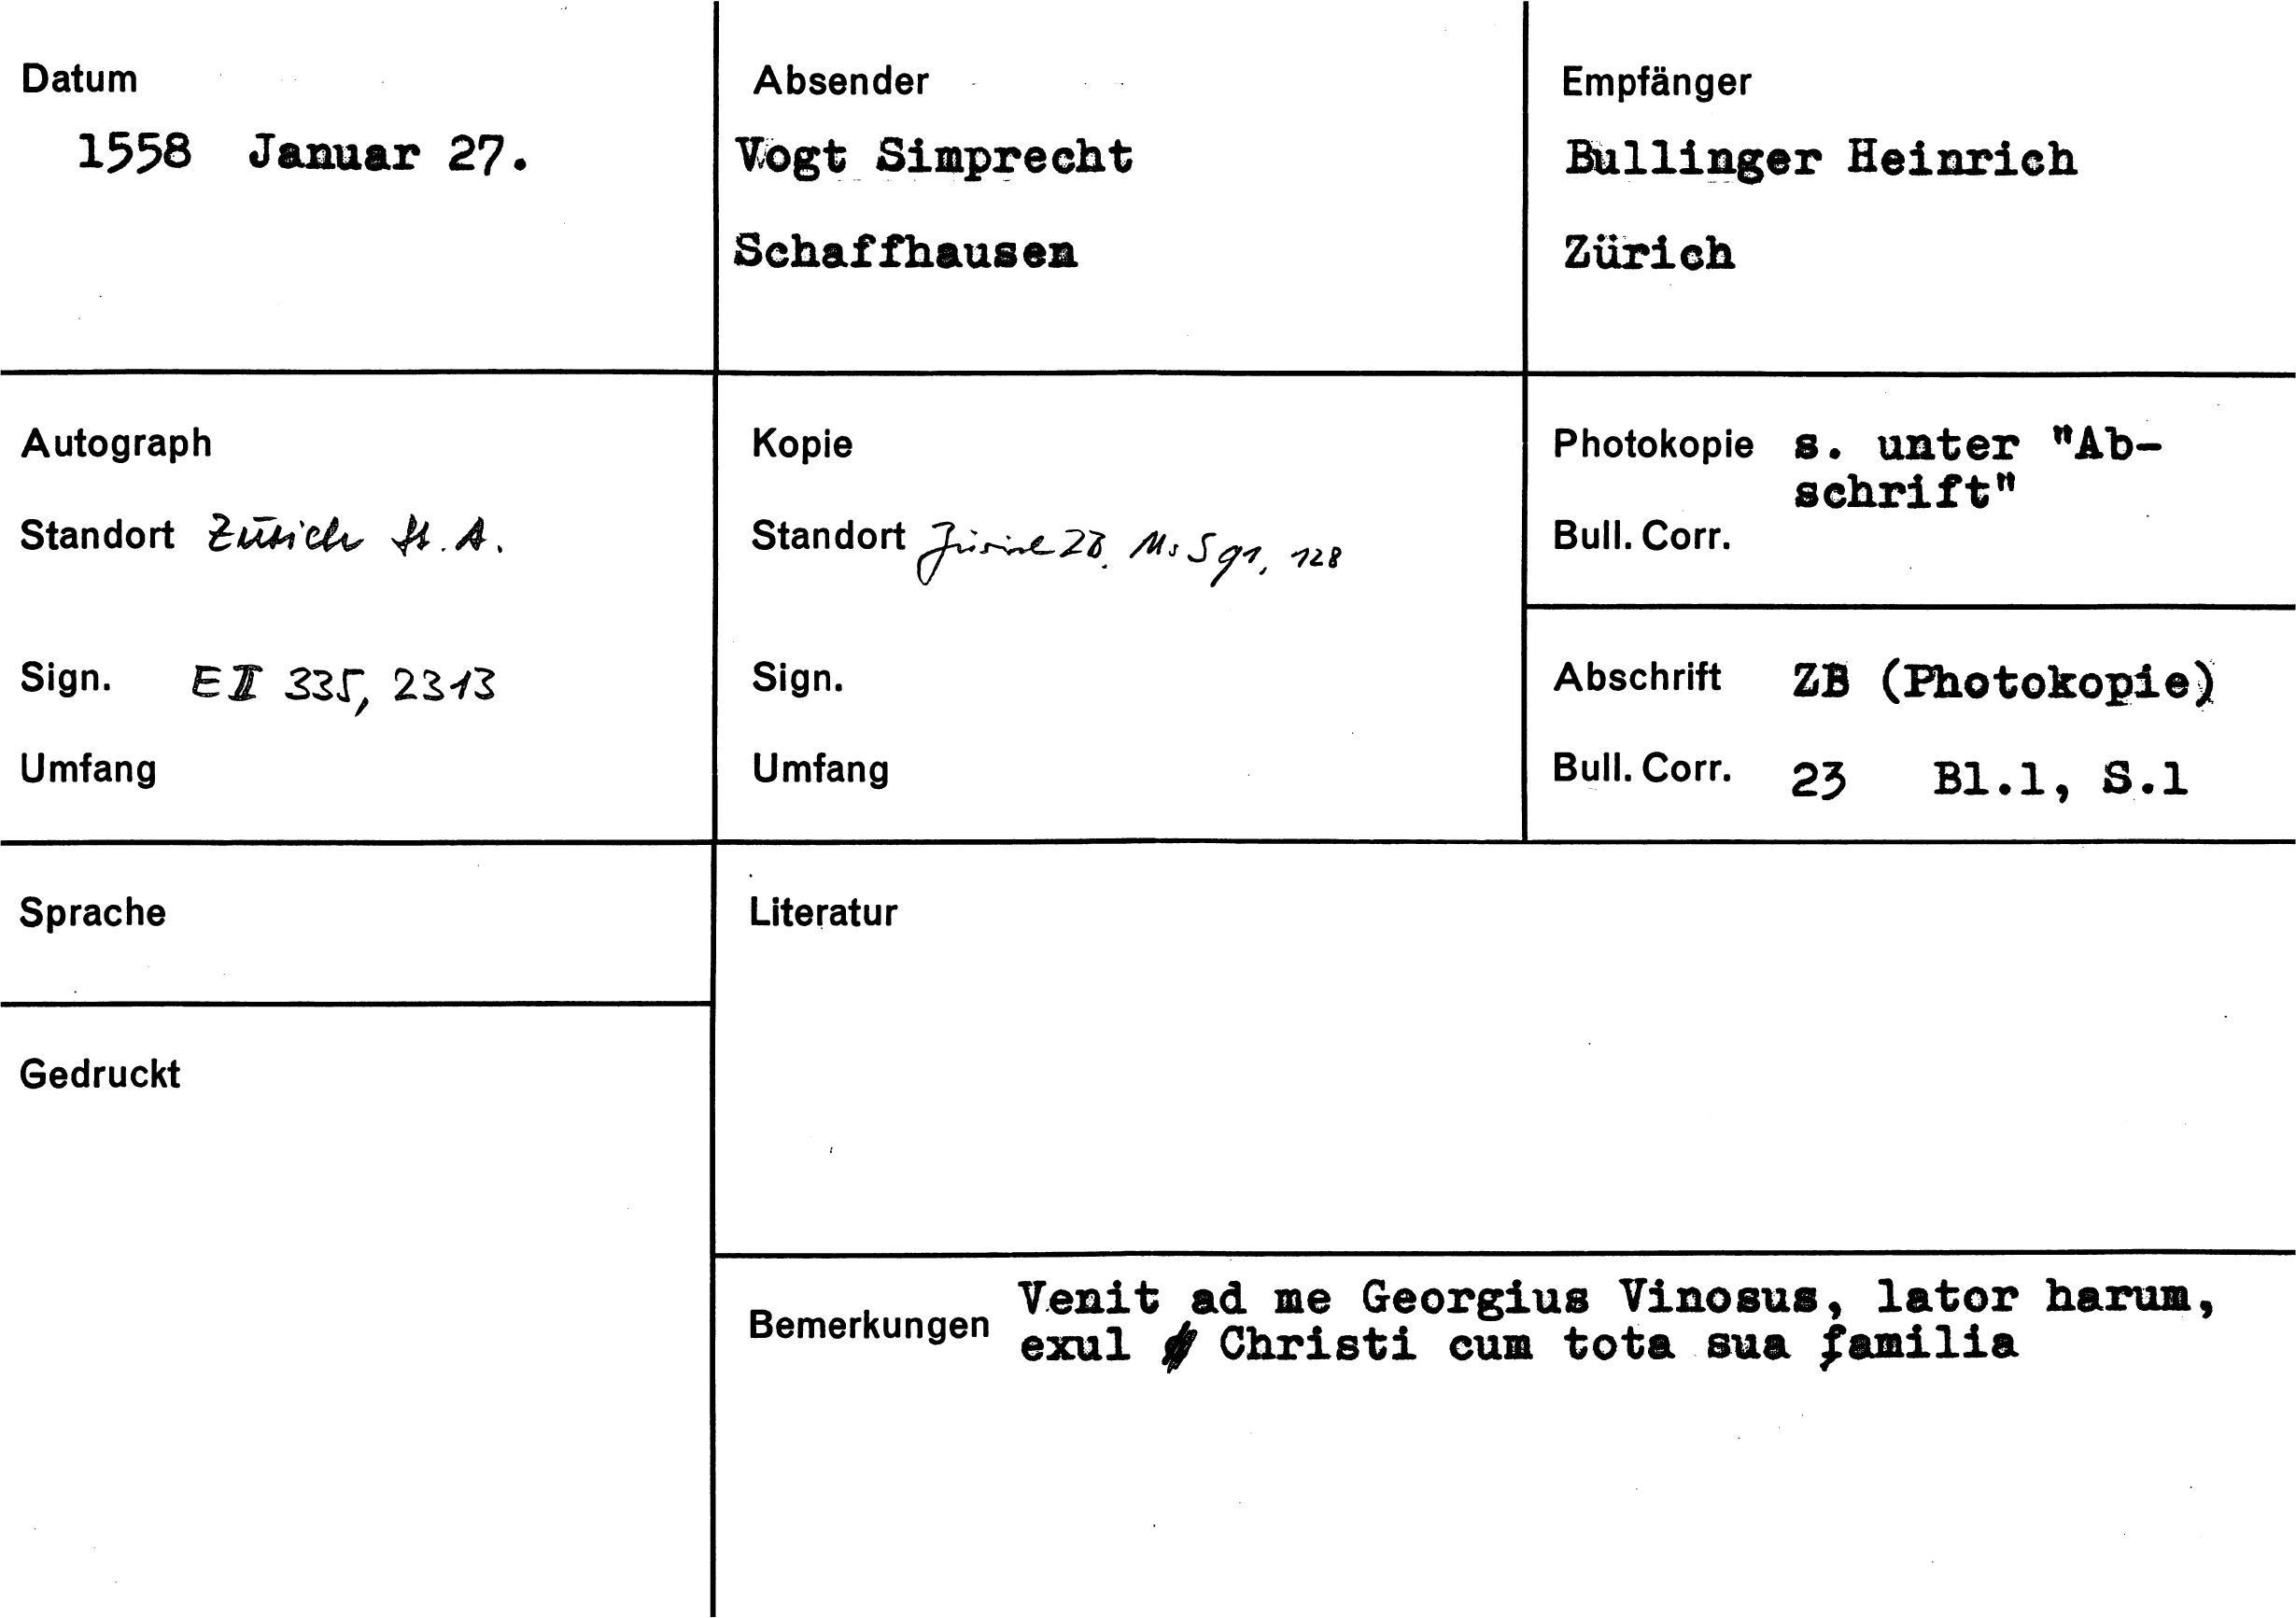 Datum
1558 Januar 27.
Absender
Vogt Simprecht
Schaffhausen
Empfänger
Bullinger Heinrich
Zürich
Autograph
Standort Zürich St. A.
Sign. E II 335, 2313
Umfang
Kopie
Standort Zürich ZB. Ms S 91, 128
Sign.
Umfang
Photokopie s. unter "Ab-
schrift"
Bull. Corr.
Abschrift ZB (Photokopie)
Bull. Corr. 23 Bl.1, S.1
Sprache
Gedruckt
Literatur
Bemerkungen
Venit ad me Georgius Vinosus, lator harum,
exul Christi cum tota sua familia